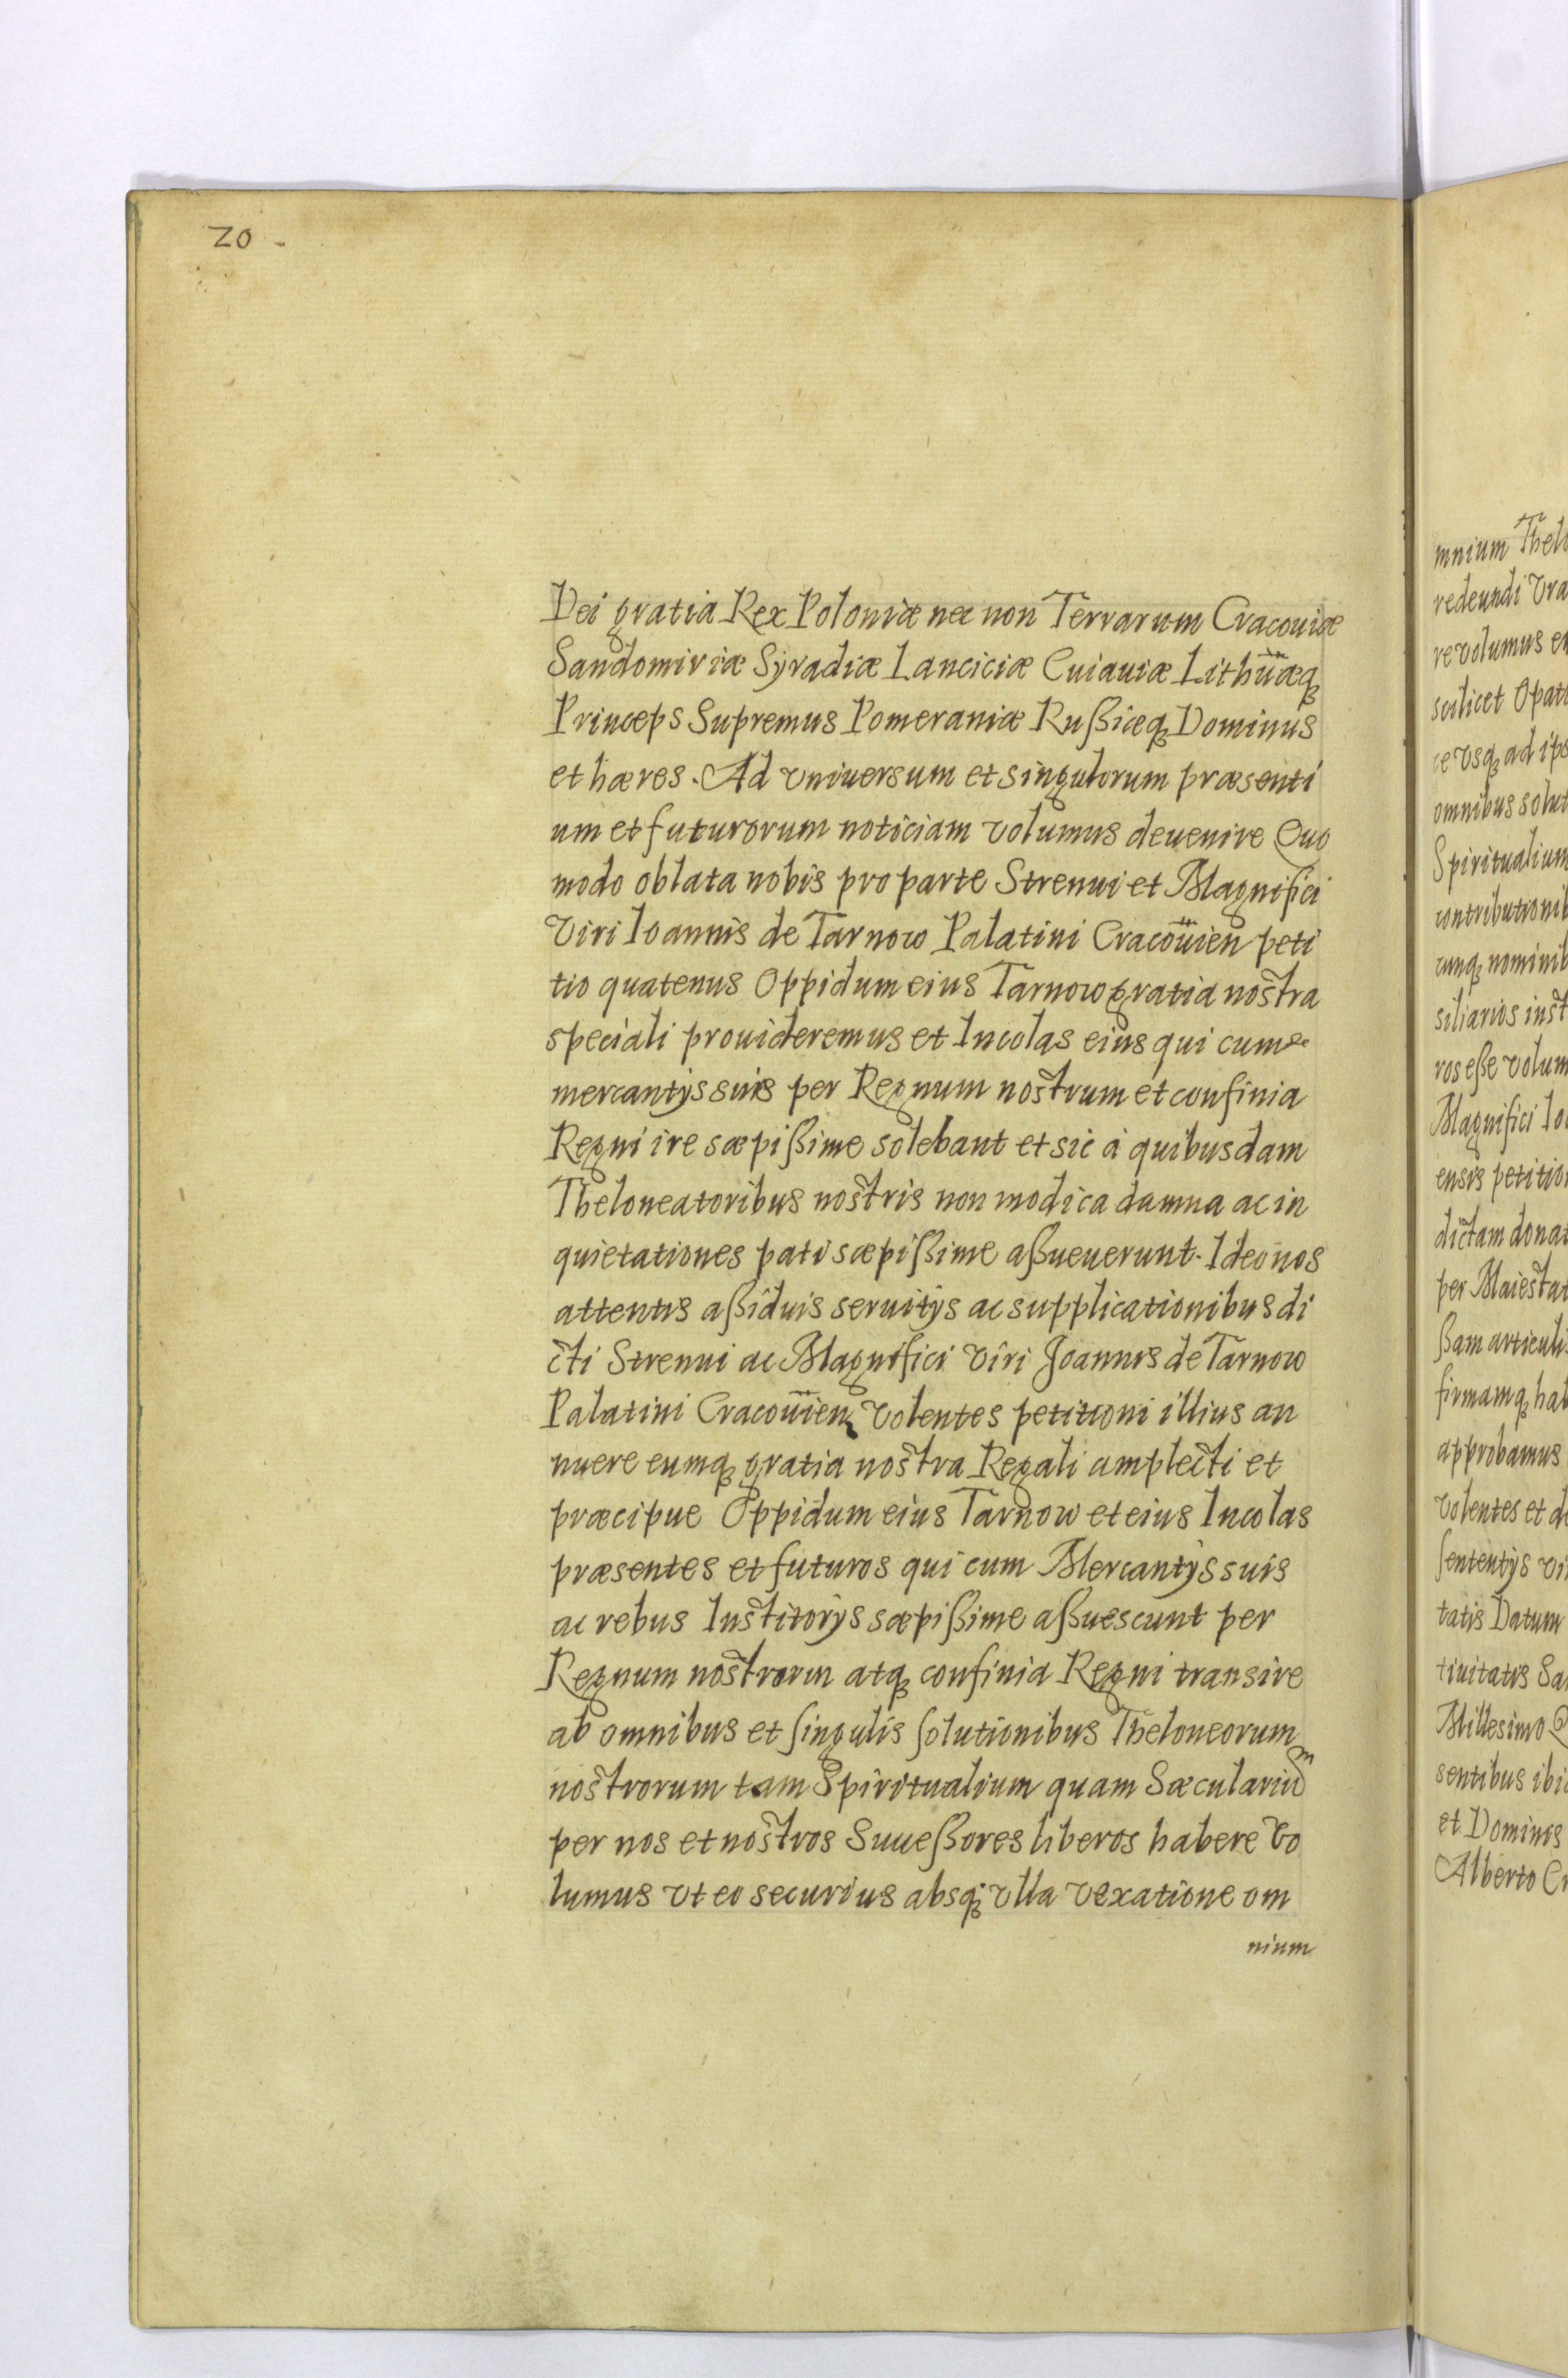 20
Dei gratia Rex Poloniæ nec non Terrarum Cracouiæ
Sandomiriæ Syradiæ Lanciciæ Cuiauiæ Lithūæq
Princeps Supremus Pomeraniæ Rußiæq Dominus
et hæres. Ad vniuersum et singulorum præsenti
um et futurorum noticiam volumus deuenire Quo
modo oblata nobis pro parte Strenui et Magnifici
Viri Ioannis de Tarnow Palatini Cracouien peti
tio quatenus Oppidum eius Tarnow gratia nostra
speciali prouideremus et Incolas eius qui cum
mercantijs suis per Regnum nostrum et confinia
Regni ire sæpißime solebant et sic à quibusdam
Theloneatoribus nostris non modica damna ac in
quietationes pati sæpißime aßueuerunt. Ideo nos
attentis aßiduis seruitijs ac supplicationibus di
cti Strenui ac Magnifici Viri Joannis de Tarnow
Palatini Cracouien volentes petitioni illius an
nuere eumq gratia nostra Regali amplecti et
præcipue Oppidum eius Tarnow et eius Incolas
præsentes et futuros qui cum Mercantijs suis
ac rebus Institorijs sæpißime aßuescunt per
Regnum nostrorm atq confinia Regni transire
ab omnibus et singulis solutionibus Theloneorum
nostrorum tam Spiritualium quam Sæculariũ
per nos et nostros Succeßores liberos habere vo
lumus vt eo securius absq vlla vexatione om
nium
mnium
redeundi
re volumus
scilicet
ce vsq ad
omnibus
Spiritualium
cunq
siliarios
ros eße
Magnifici
ensis
dictam
per
ßam
firmamq
approbamus
volentes et
sententijs
tatis Datum
tiuitatis
Millesimo
sentibus
et Dominis
Alberto